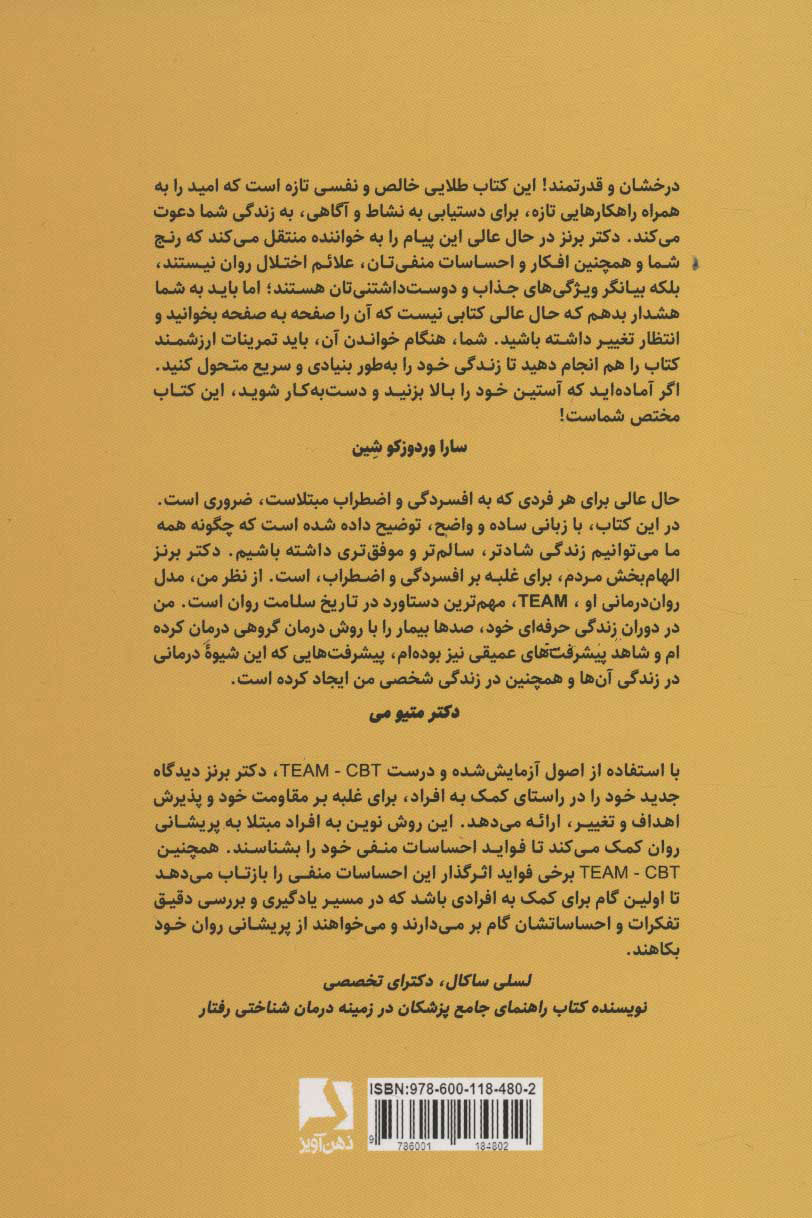 درخشان و قدرتمند! این کتاب طلایی خالص و نفسی تازه است که امید را به
همراه راهکارهایی تازه، برای دستیابی به نشاط و آگاهی، به زندگی شما دعوت
می‌کند. دکتر برنز در حال عالی این پیام را به خواننده منتقل می‌کند که رنج
شما و همچنین افکار و احساسات منفی‌تان، علائم اختلال روان نیستند،
بلکه بیانگر ویژگی‌های جذاب و دوست‌داشتنی‌تان هستند؛ اما باید به شما
هشدار بدهم که حال عالی کتابی نیست که آن را صفحه به صفحه بخوانید و
انتظار تغییر داشته باشید. شما، هنگام خواندن آن، باید تمرینات ارزشمند
کتاب را هم انجام دهید تا زندگی خود را به‌طور بنیادی و سریع متحول کنید.
اگر آماده‌اید که آستین خود را بالا بزنید و دست‌به‌کار شوید، این کتاب
مختص شماست!
سارا وردوزکو شِین
حال عالی برای هر فردی که به افسردگی و اضطراب مبتلاست، ضروری است.
در این کتاب، با زبانی ساده و واضح، توضیح داده شده است که چگونه همه
ما می‌توانیم زندگی شادتر، سالم‌تر و موفق‌تری داشته باشیم. دکتر برنز
الهام‌بخش مردم، برای غلبه بر افسردگی و اضطراب، است. از نظر من، مدل
روان‌درمانی او ، TEAM، مهم‌ترین دستاورد در تاریخ سلامت روان است. من
در دوران زندگی حرفه‌ای خود، صدها بیمار را با روش درمان گروهی درمان کرده
ام و شاهد پیشرفت‌های عمیقی نیز بوده‌ام، پیشرفت‌هایی که این شیوهٔ درمانی
در زندگی آن‌ها و همچنین در زندگی شخصی من ایجاد کرده است.
دکتر متیو می
با استفاده از اصول آزمایش‌شده و درست TEAM - CBT، دکتر برنز دیدگاه
جدید خود را در راستای کمک به افراد، برای غلبه بر مقاومت خود و پذیرش
اهداف و تغییر، ارائه می‌دهد. این روش نوین به افراد مبتلا به پریشانی
روان کمک می‌کند تا فواید احساسات منفی خود را بشناسند. همچنین
TEAM - CBT برخی فواید اثرگذار این احساسات منفی را بازتاب می‌دهد
تا اولین گام برای کمک به افرادی باشد که در مسیر یادگیری و بررسی دقیق
تفکرات و احساساتشان گام بر می‌دارند و می‌خواهند از پریشانی روان خود
بکاهند.
لسلی ساکال، دکترای تخصصی
نویسنده کتاب راهنمای جامع پزشکان در زمینه درمان شناختی رفتار
ISBN:978-600-118-480-2
9 786001 184802
ذهن‌آویز